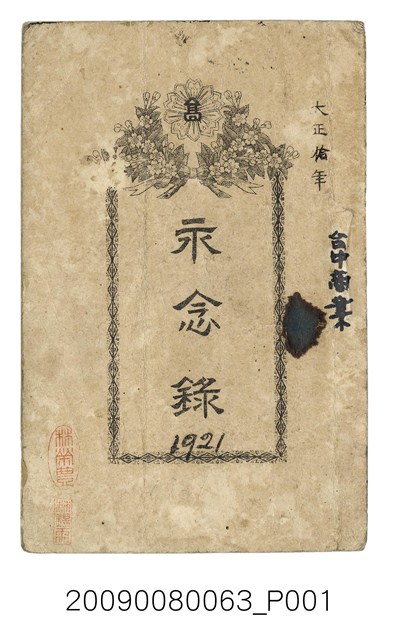 大正拾年
台中商業
高
永念錄
1921
20090080063_P001